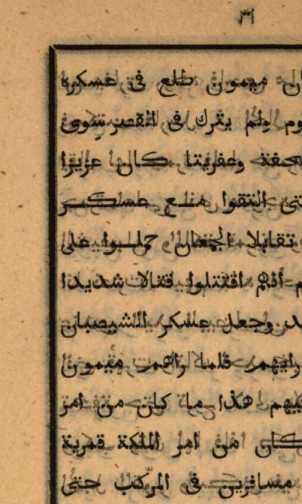 ٣١
ان ميمون طلع في عسكره
وم ولم يترك في القصر سوى
تحفة وعفريتا كان عزيزا
حتى التقوا مع عسكر
تقابلا الجمعان حملوا على
م انهم اقتتلوا قتالا شديدا
وجعل عسكر الشيصبان
رايهم فلما راهم ميمون
هذا ما كان من امر
كان من امر الملكة قمرية
مسافرين في المركب حتى